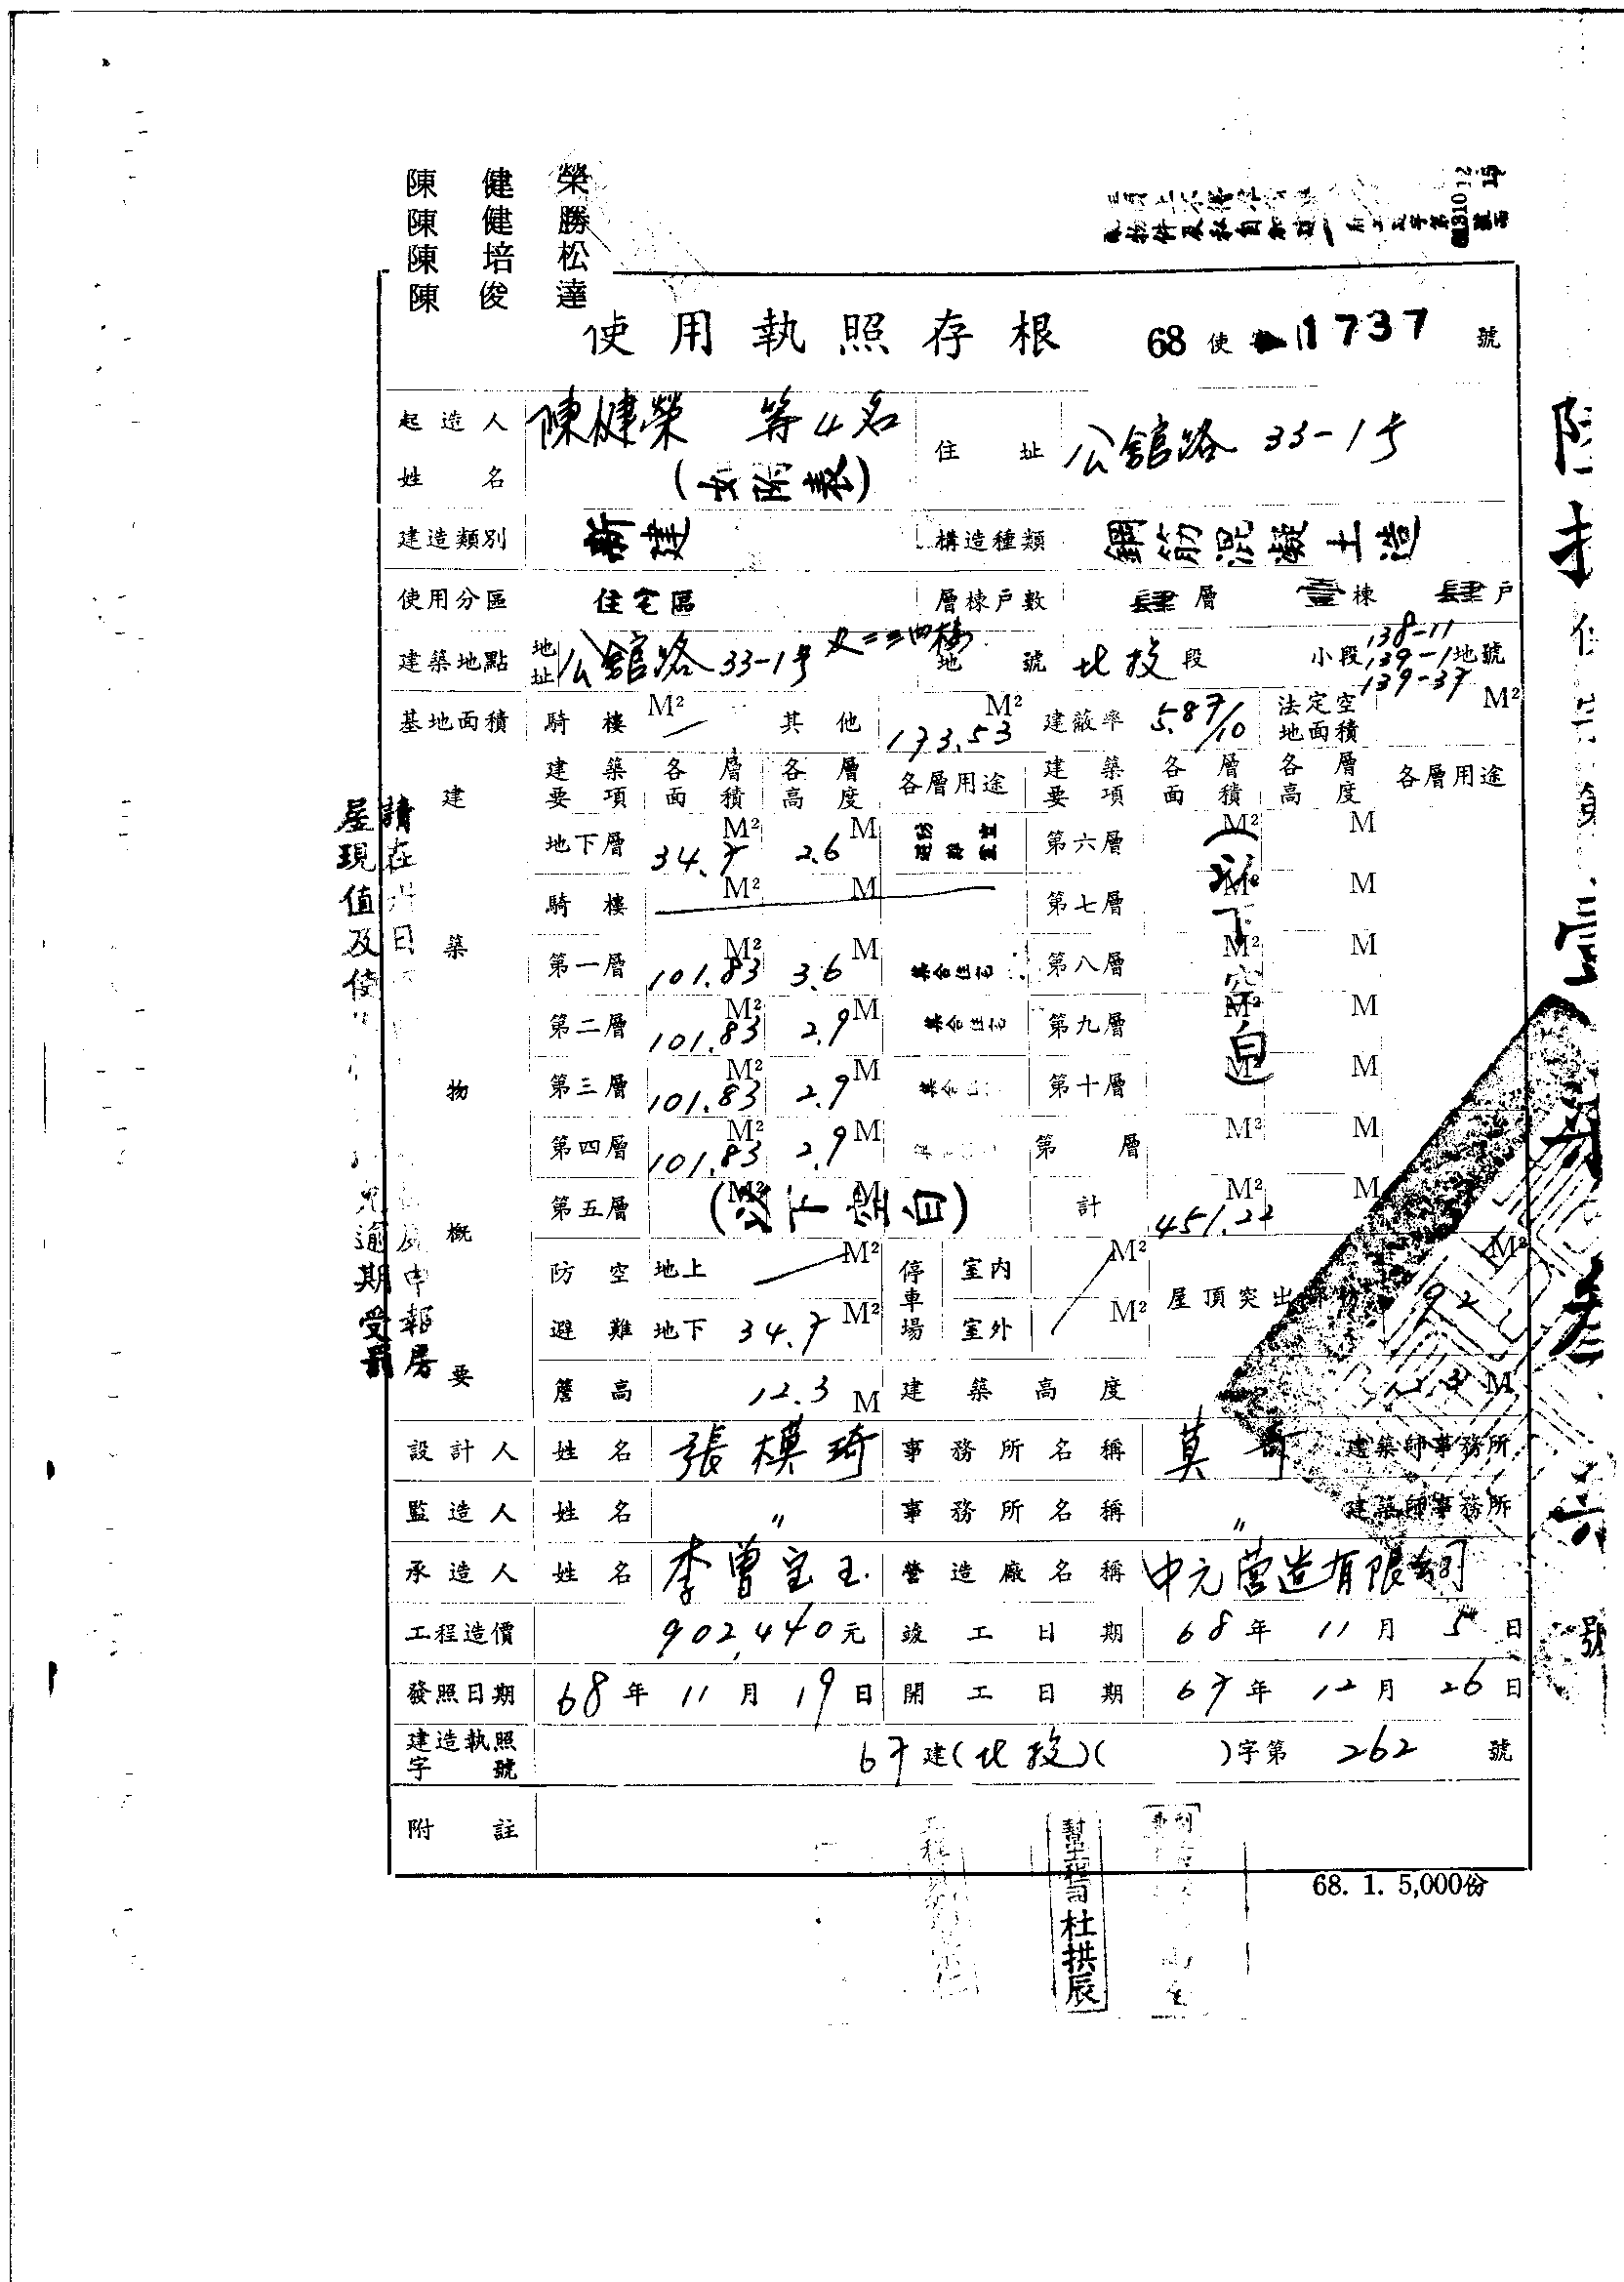 陳健榮
陳健勝
陳培松
陳俊達
使用執照存根 68使字 1737 號
起造人姓名 陳健榮 等4名 (如附表) 住址 公館路 33-1号
建造類別 新建 構造種類 鋼筋混凝土造
使用分區 住宅區 層棟戶數 肆層 壹棟 肆戶
建築地點 地址 公館路 33-1号 及二三四樓 地號 北投段 小段 138-11 139-1 139-37 地號
基地面積 騎樓 M² 其他 173.53 M² 建蔽率 5.87/10 法定空地面積 M²
建築物概要
建築要項 各層面積 各層高度 各層用途 建築要項 各層面積 各層高度 各層用途
地下層 34.7 M² 2.6 M 第六層 M² M
騎樓 M² M 第七層 M² M
第一層 101.83 M² 3.6 M 集合住宅 第八層 M² M
第二層 101.83 M² 2.9 M 集合住宅 第九層 M² M
第三層 101.83 M² 2.9 M 集合住宅 第十層 M² M
第四層 101.83 M² 2.9 M 第 層 M² M
(以下空白)
第五層 (以下空白) M² M 計 451.22 M² M
防空避難 地上 M² 地下 34.7 M² 停車場 室內 M² 室外 M² 屋頂突出 M²
簷高 12.3 M 建築高度 M
設計人 姓名 張模琦 事務所名稱 莫奇 建築師事務所
監造人 姓名 〃 事務所名稱 〃 建築師事務所
承造人 姓名 李曾宝玉 營造廠名稱 中元营造有限公司
工程造價 902,440元 竣工日期 68年 11月 5日
發照日期 68年 11月 19日 開工日期 67年 12月 26日
建造執照字號 67建(北投)( )字第 262 號
附註
68. 1. 5,000份
幫工程司 杜拱辰